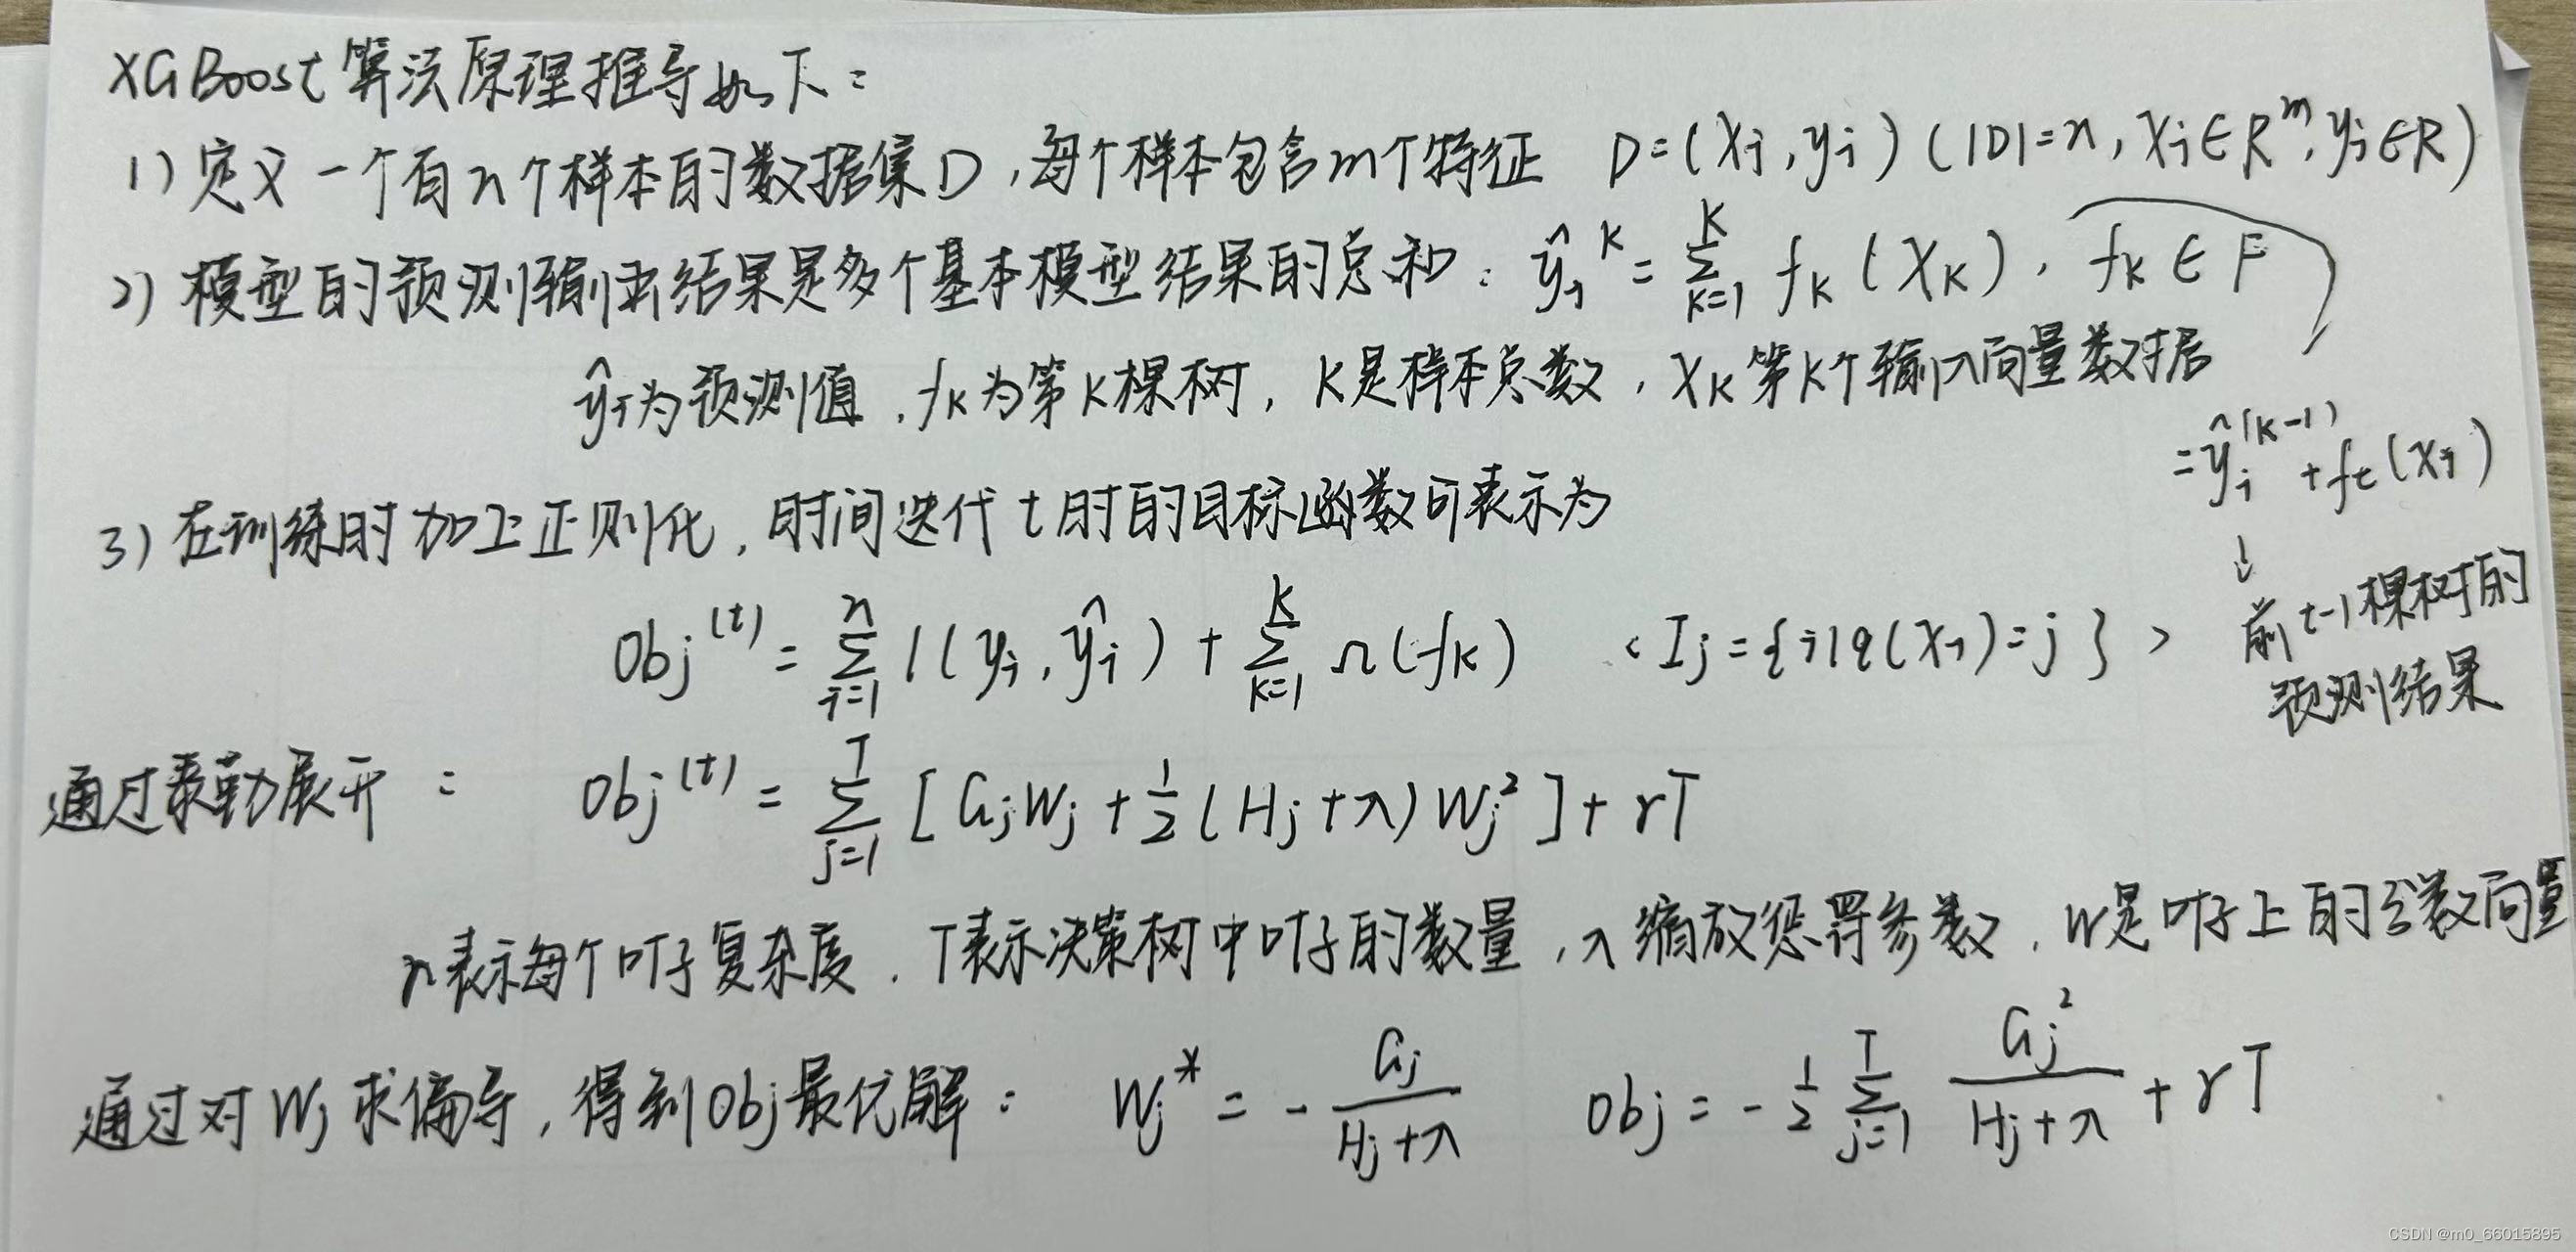 XGBoost算法原理推导如下：
1) 定义一个有n个样本的数据集D，每个样本包含m个特征 D=(xi,yi) (|D|=n, xi∈R^m, yi∈R)
2) 模型的预测输出结果是多个基本模型结果的总和：ŷi^K = Σ_{k=1}^{K} fK(XK)，fK∈F
ŷi为预测值，fK为第K棵树，K是样本总数，XK第K个输入向量数据
=ŷi^(K-1)+ft(Xi)
↓
前t-1棵树的
预测结果
3) 在训练时加上正则化，时间迭代t时的目标函数可表示为
Obj^(t) = Σ_{i=1}^{n} l(yi,ŷi) + Σ_{k=1}^{K} Ω(fK) <Ij={i|q(Xi)=j}>
通过泰勒展开： Obj^(t) = Σ_{j=1}^{T} [GjWj+½(Hj+λ)Wj²]+γT
γ表示每个叶子复杂度，T表示决策树中叶子的数量，λ缩放惩罚参数，W是叶子上的分数向量
通过对Wj求偏导，得到Obj最优解： Wj* = -Gj/(Hj+λ) Obj = -½ Σ_{j=1}^{T} Gj²/(Hj+λ) + γT
CSDN @m0_66015895